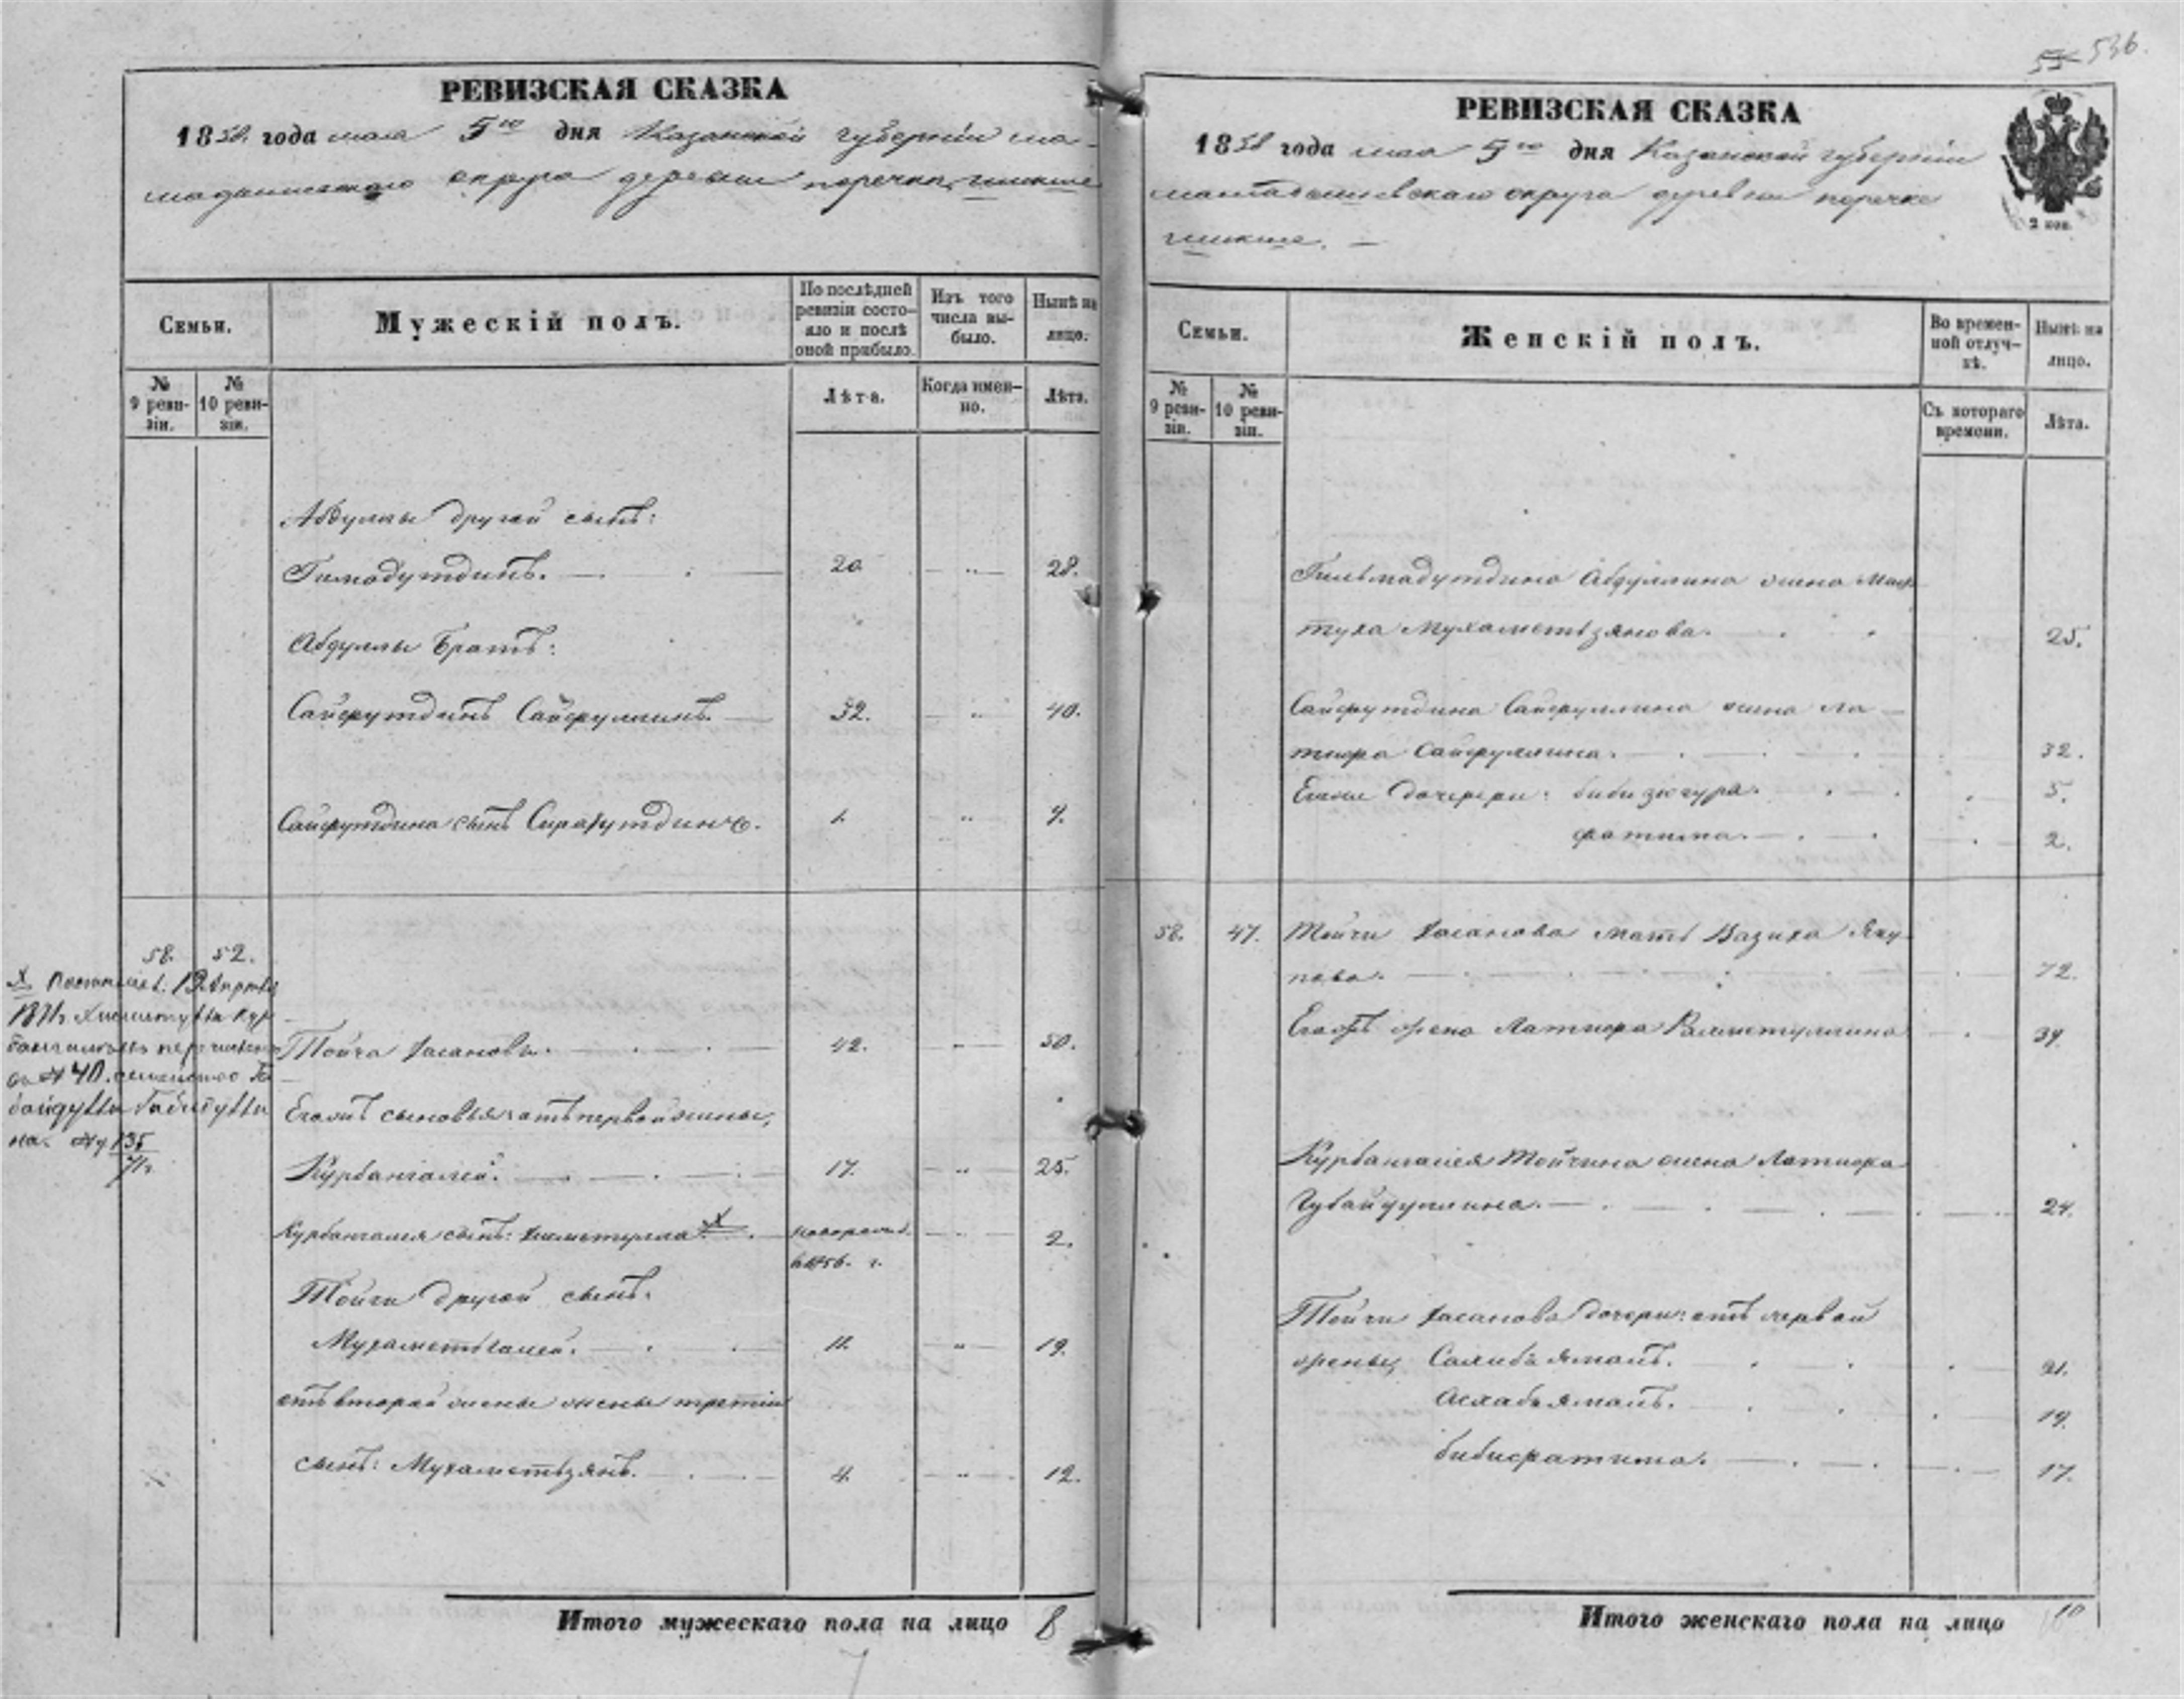 536.
РЕВИЗСКАЯ СКАЗКА
1858 года мая 5го дня Казанской губернiи ма-
мадышскаго округа деревни
Семьи.
Мужескiй полъ.
По послѣдней ревизiи состояло и послѣ оной прибыло.
Изъ того числа выбыло.
Нынѣ на лицо.
№ 9 ревизiи.
№ 10 ревизiи.
Лѣта.
Когда именно.
Лѣта.
Абдуллы другой сынъ:
Гимадутдинъ. 20 28.
Абдуллы братъ:
Сайфутдинъ Сайфуллинъ. 32. 40.
Сайфутдина сынъ 1. 9.
58. 52.
Тойча Хасановъ. 42. 50.
Егожъ сыновья: отъ первой жены,
Курбангалей. 17. 25.
Курбангалея сынъ: X новорожд. 2.
в 1856. г.
Тойчи другой сынъ.
Мухаметьгалей. 11. 19.
отъ второй жены жены третiй
сынъ: Мухаметзянъ. 4. 12.
Х 13 Апрѣля
1871г
№ 40.
на.
135
71г.
Итого мужескаго пола на лицо 8
РЕВИЗСКАЯ СКАЗКА
1858 года мая 5го дня Казанской губернiи
мамадышевскаго округа деревни
2 коп.
Семьи.
Женскiй полъ.
Во временной отлучкѣ.
Нынѣ на лицо.
№ 9 ревизiи.
№ 10 ревизiи.
Съ котораго времени.
Лѣта.
Гильмадутдина Абдуллина жена Мах-
туха Мухаметзянова. 25.
Сайфутдина Сайфуллина жена Ла-
тифа Сайфуллина. 32.
Егоже дочери: бибизюгура. 5.
фатима. 2.
58. 47. Тойчи Хасанова мать Вазиха Яку-
пова. 72.
Егожъ жена Латифа Рахметуллина 39.
Курбангалея Тойчина жена Латифа
Губайдуллина. 24.
Тойчи Хасанова дочери: отъ первой
жены, Салибъямалъ. 21.
Асхабъямалъ. 19.
бибифатима. 17.
Итого женскаго пола на лицо 10